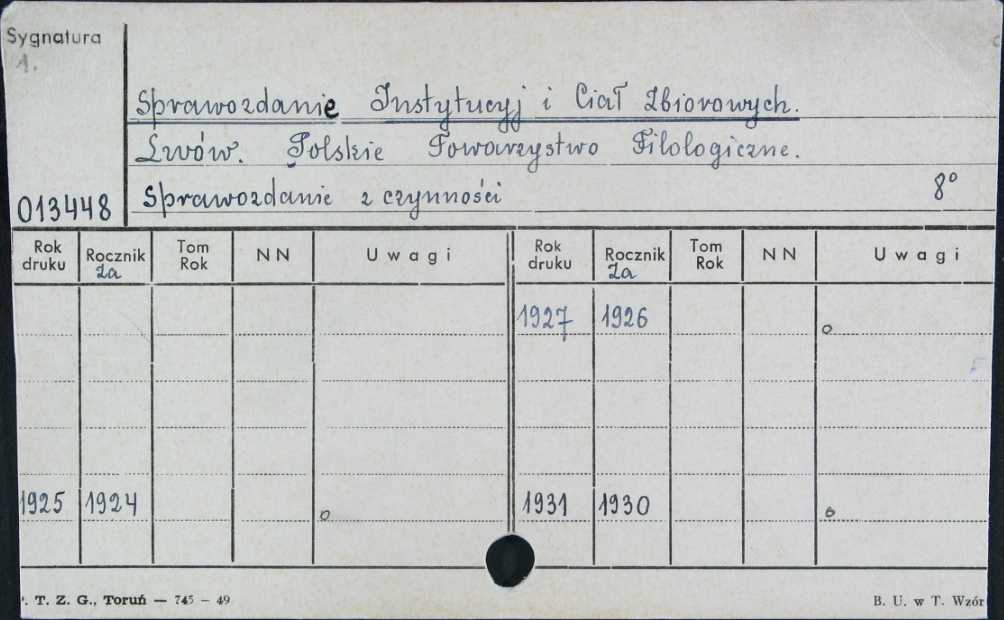 Sygnatura
1.
Sprawozdanie Instytucyj i Ciał Zbiorowych.
Lwów. Polskie Towarzystwo Filologiczne.
013448 Sprawozdanie z czynności 8°
Rok druku Rocznik za Tom Rok NN Uwagi Rok druku Rocznik Za Tom Rok NN Uwagi
1927 1926 o
1925 1924 o 1931 1930 o
. T. Z. G., Toruń — 745 – 49 B. U. w T. Wzór